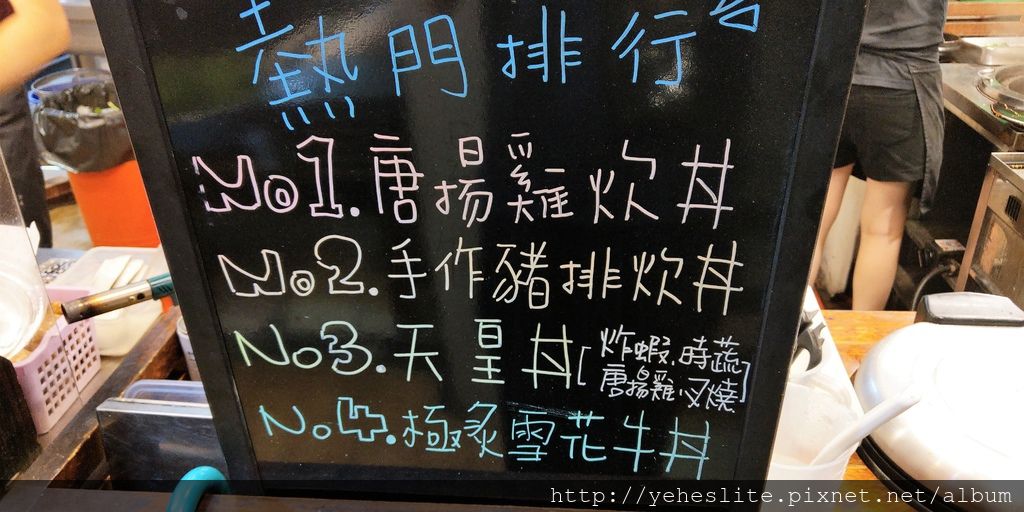 熱門排行
No1.唐揚雞炊丼
No2.手作豬排炊丼
No3.天皇丼[炸蝦、時蔬
唐揚雞、叉燒]
No.4.極炙雪花牛丼
http://yeheslite.pixnet.net/album